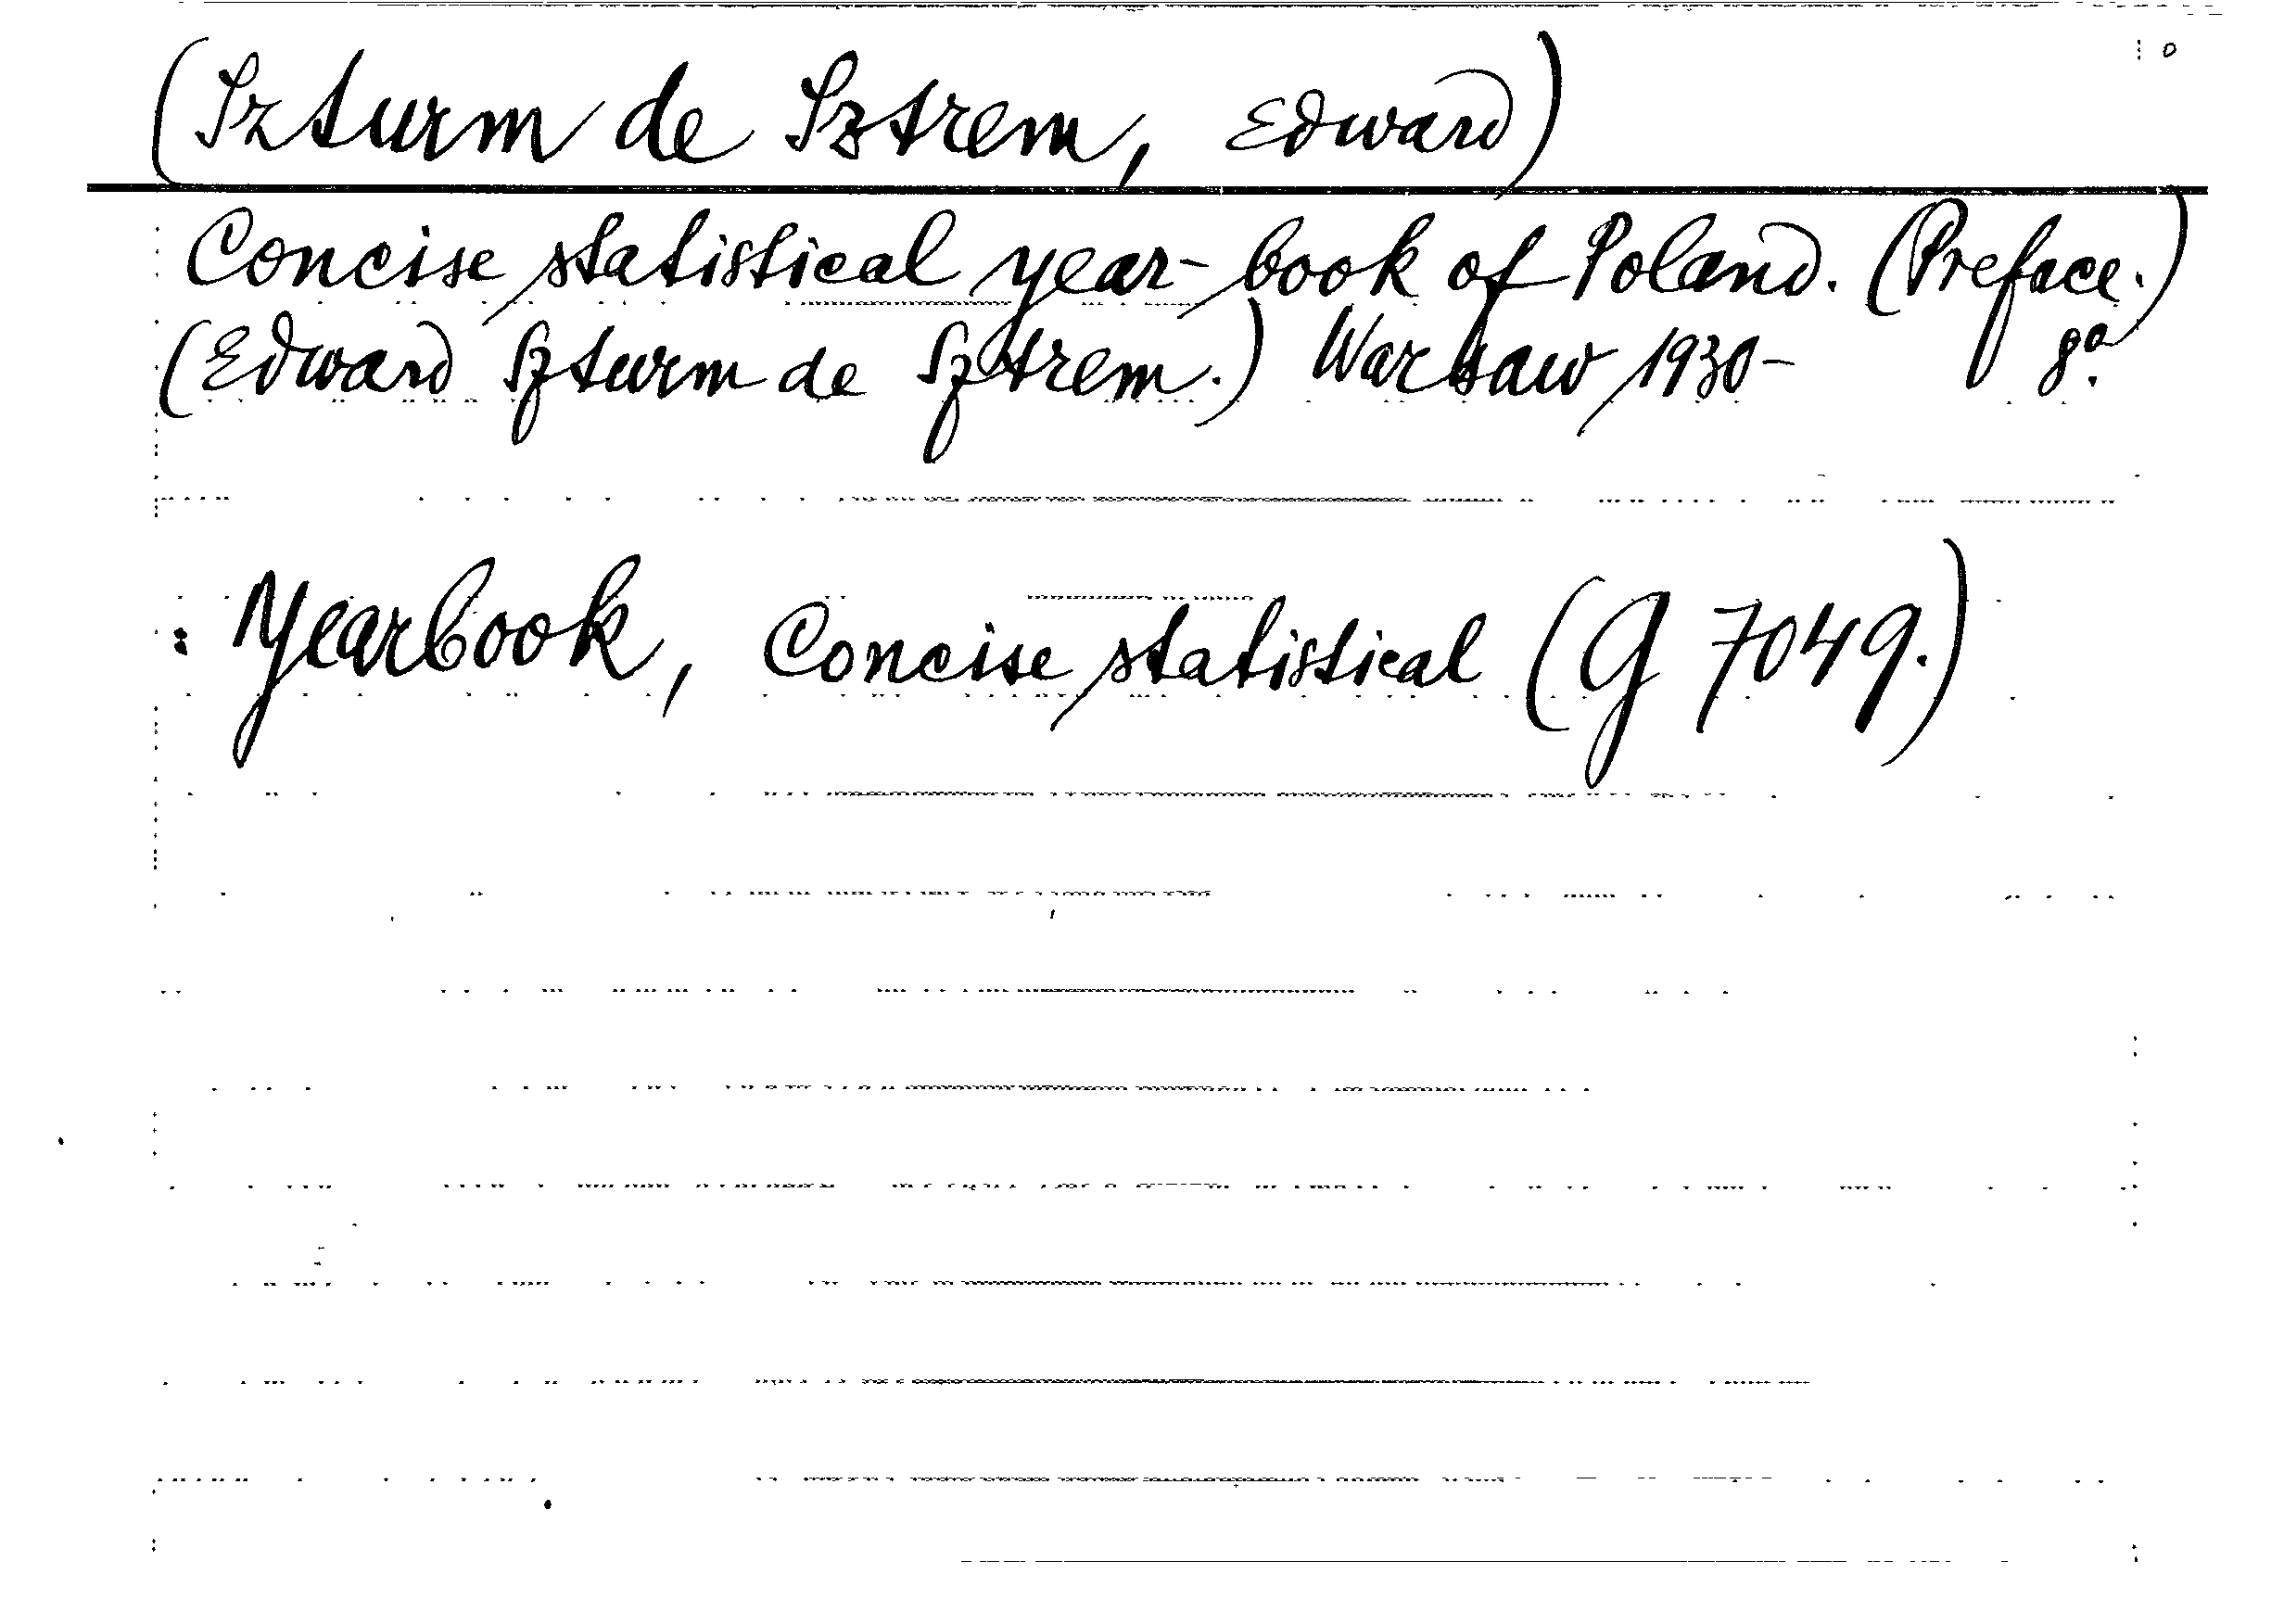 (Szturm de Sztrem, Edward)
Concise statistical year-book of Poland. (Preface.)
(Edward Szturm de Sztrem.) Warsaw 1930- 8º.
: Yearbook, Concise statistical (G 7049.)